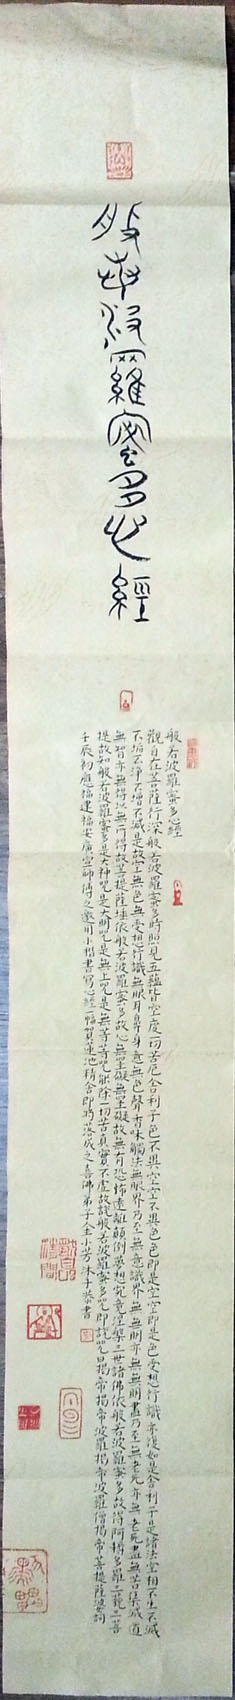 般若波羅蜜多心經
般若波羅蜜多心經
觀自在菩薩行深般若波羅蜜多時照見五蘊皆空度一切苦厄舍利子色不異空空不異色色即是空空即是色受想行識亦復如是舍利子是諸法空相不生不滅
不垢不淨不增不減是故空中無色無受想行識無眼耳鼻舌身意無色聲香味觸法無眼界乃至無意識界無無明亦無無明盡乃至無老死亦無老死盡無苦集滅道
無智亦無得以無所得故菩提薩埵依般若波羅蜜多故心無罣礙無罣礙故無有恐怖遠離顛倒夢想究竟涅槃三世諸佛依般若波羅蜜多故得阿耨多羅三藐三菩
提故知般若波羅蜜多是大神咒是大明咒是無上咒是無等等咒能除一切苦真實不虛故說般若波羅蜜多咒即說咒曰揭帝揭帝波羅揭帝波羅僧揭帝菩提薩婆訶
壬辰初應福建福安廣宣師傅之邀用小楷書寫心經一幅賀蓮池精舍即將落成之喜佛弟子金小芳沐手恭書